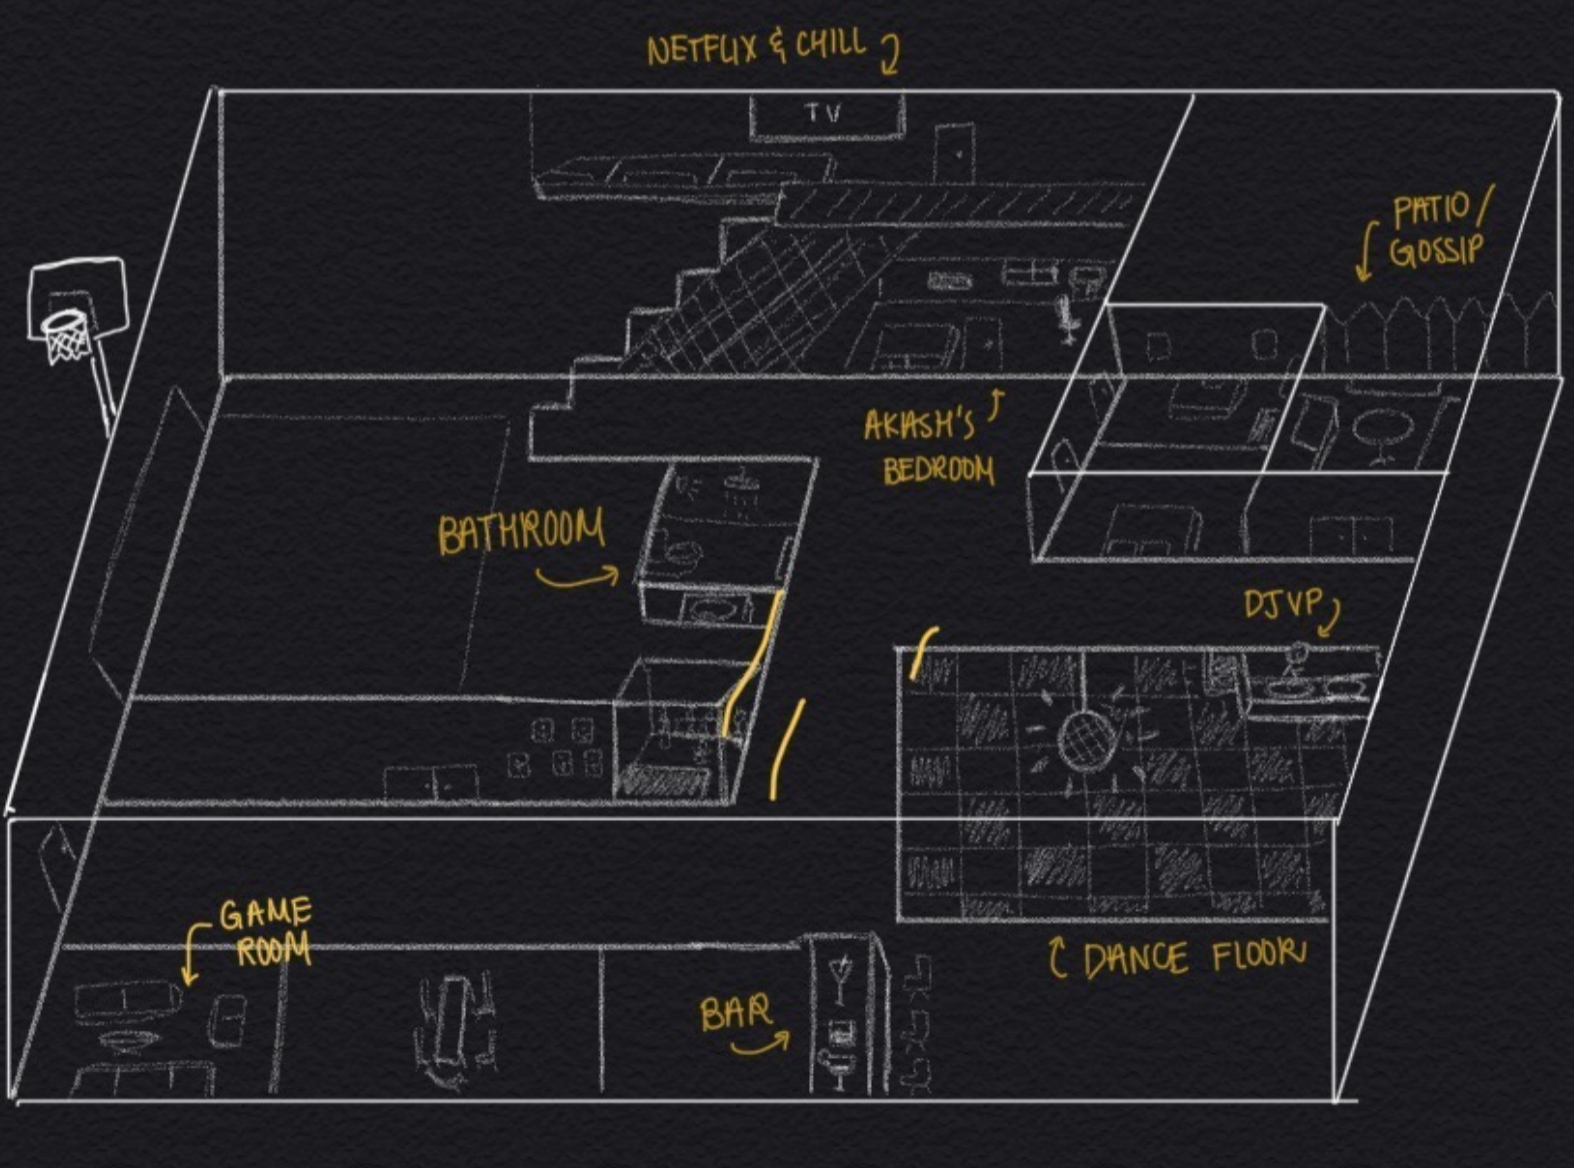 NETFLIX & CHILL
TV
PATIO/
GOSSIP
AKASH'S
BEDROOM
BATHROOM
DJVP
GAME
ROOM
DANCE FLOOR
BAR